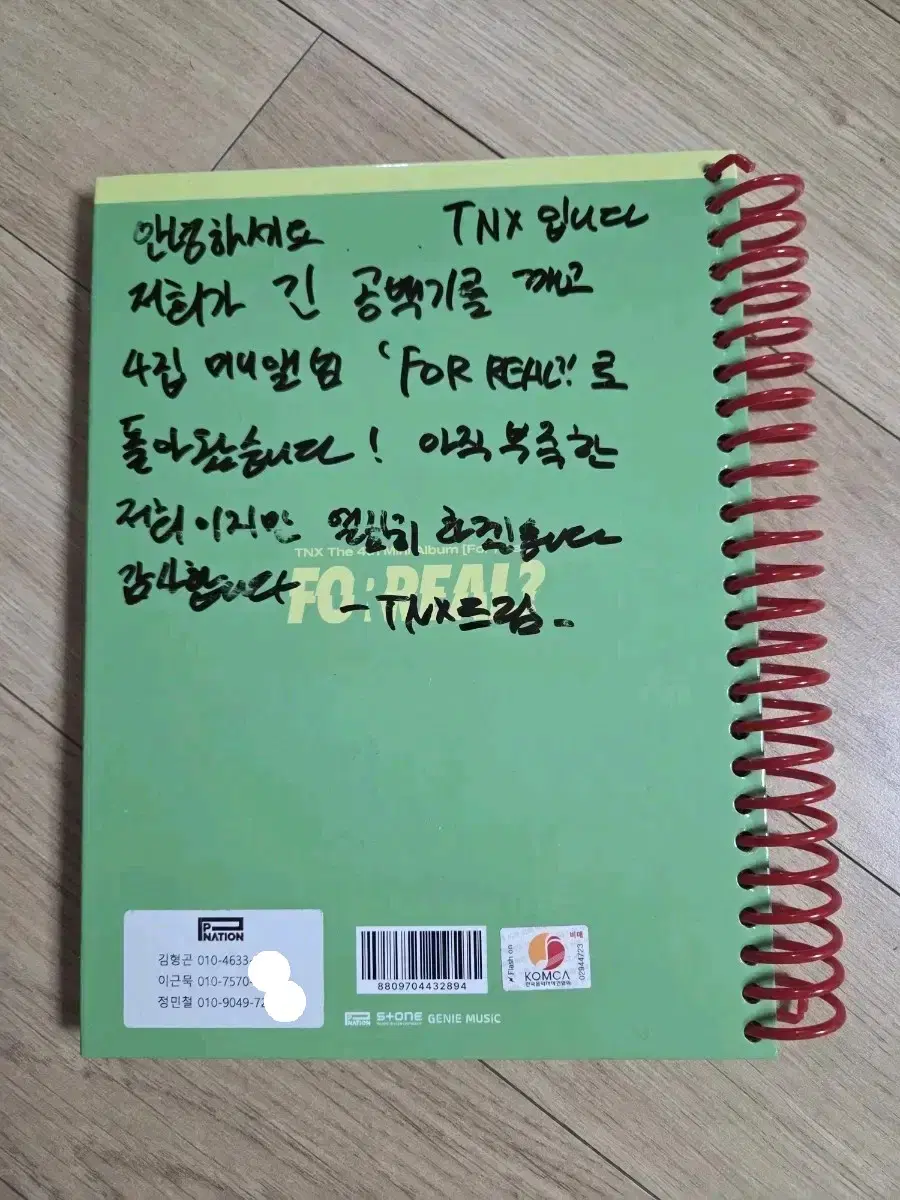 안녕하세요 TNX입니다
저희가 긴 공백기를 깨고
4집 미니앨범 'FOR REAL?!'로
돌아왔습니다! 아직 부족한
저희이지만 열심히 하겠습니다
감사합니다
- TNX드림.
TNX The 4th Mini Album [Fo
FO: REAL?
P NATION
김형곤 010-4633-
이근묵 010-7570-
정민철 010-9049-72
8809704432894
Flash on
KOMCA
한국음악저작권협회
비매
02944723
P NATION STONE GENIE MUSIC